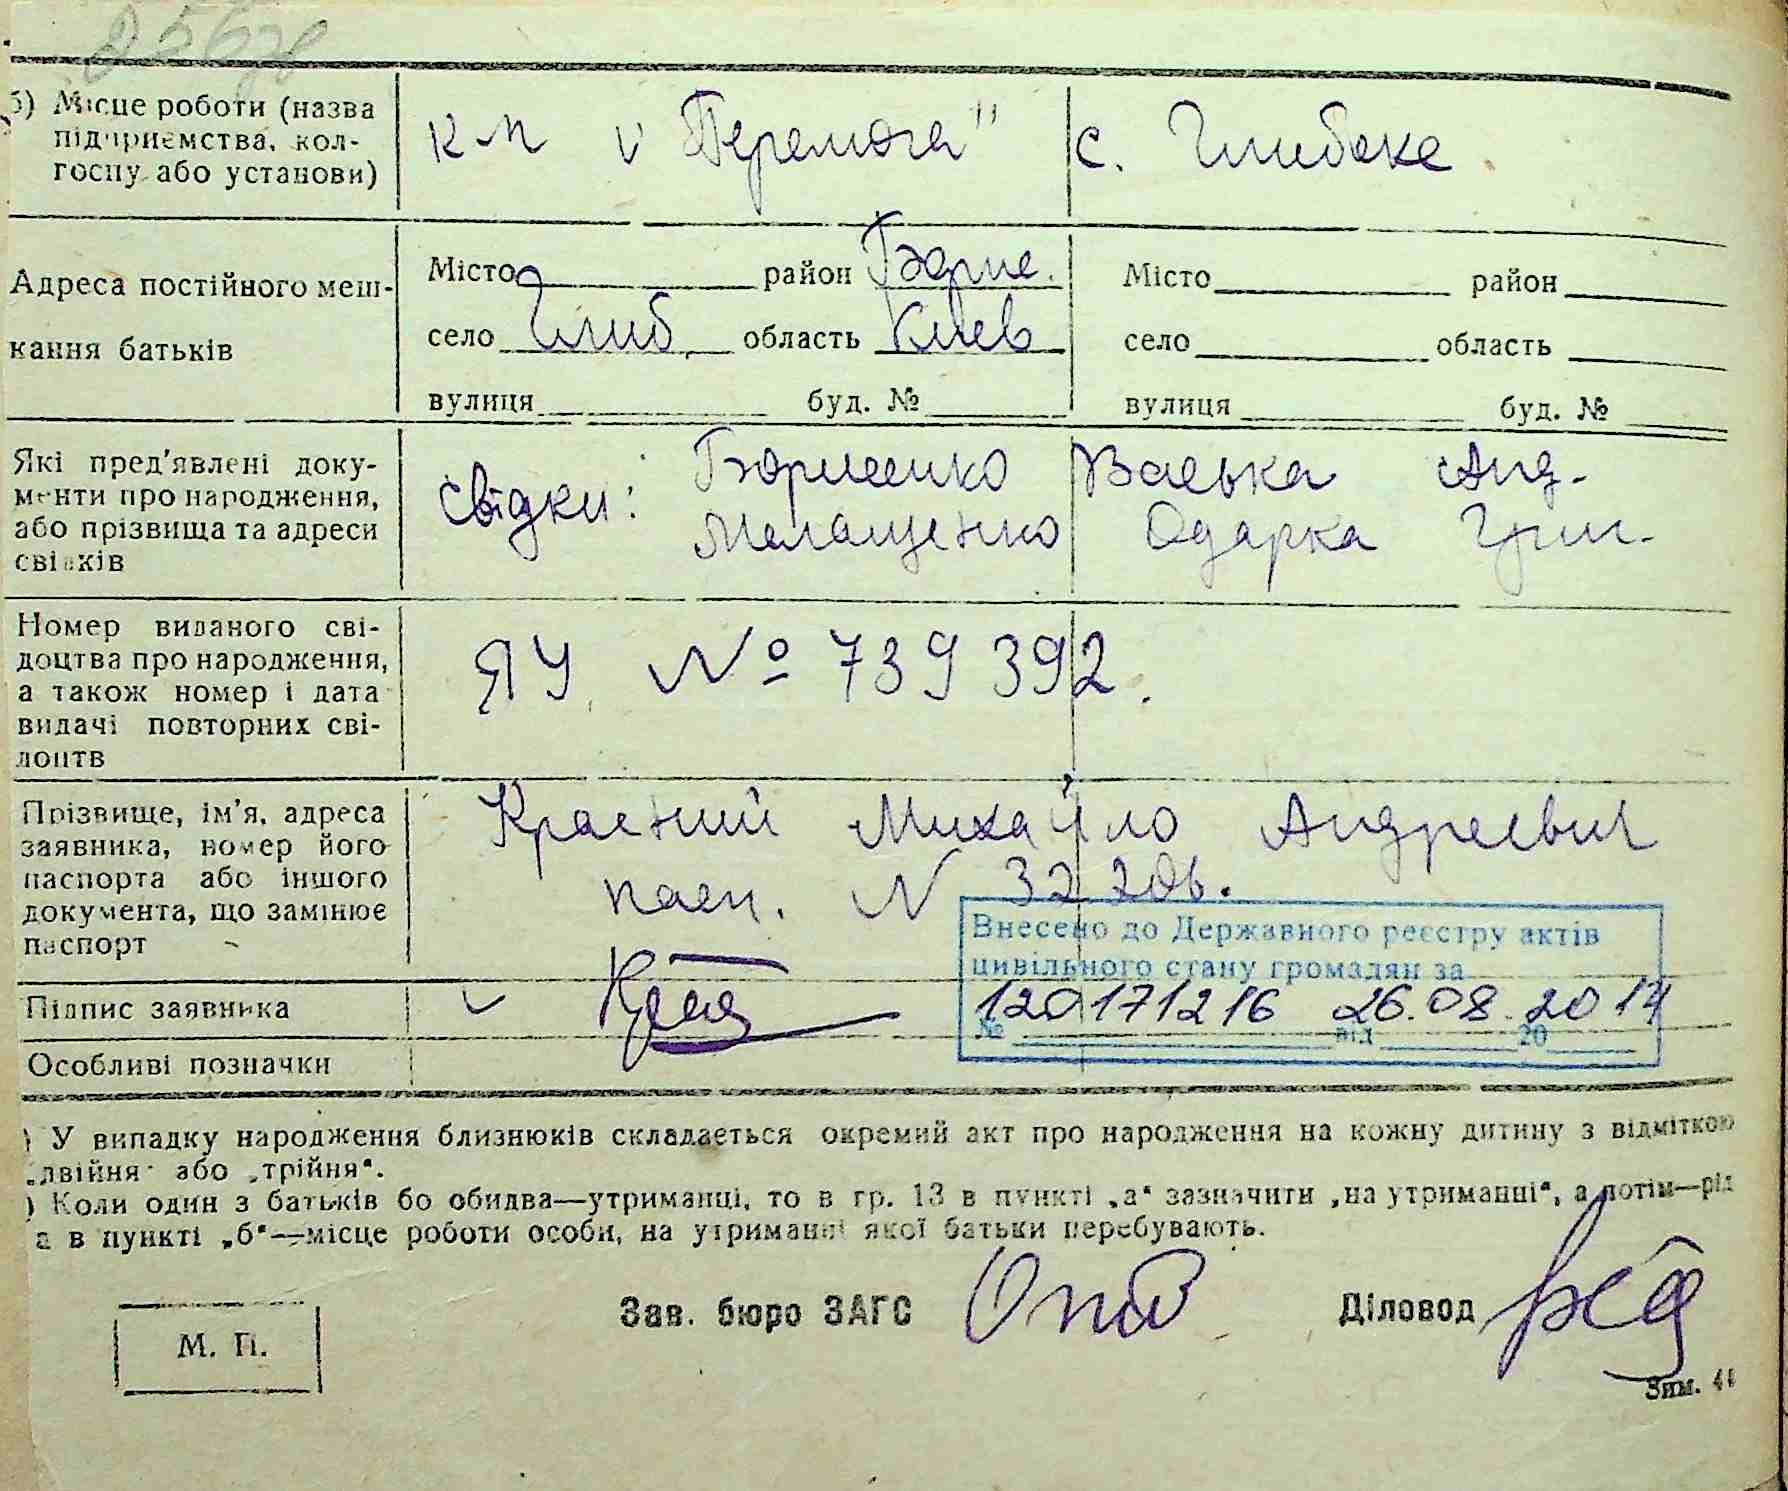 б) Місце роботи (назва підприємства, колгоспу або установи)
к-п "Перемога" с. Глибоке
Адреса постійного мешкання батьків
Місто район Борис.
село Глиб. область Київ
вулиця буд. №
Місто район
село область
вулиця буд. №
Які пред'явлені документи про народження, або прізвища та адреси свідків
Свідки: Борисенко Васька Анд.
Малащенко Одарка Григ.
Номер виданого свідоцтва про народження, а також номер і дата видачі повторних свідоцтв
ЯУ № 739392.
Прізвище, ім'я, адреса заявника, номер його паспорта або іншого документа, що замінює паспорт
Красний Михайло Андреевич
пасп. N
Внесено до Державного реєстру актів
цивільного стану громадян за
№ 120171216 від 26.08.2014
Підпис заявника
Особливі позначки
) У випадку народження близнюків складається окремий акт про народження на кожну дитину з відміткою
„двійня" або „трійня".
) Коли один з батьків бо обидва—утриманці, то в гр. 13 в пункті „а" зазначити „на утриманні", а потім—рід
а в пункті „б"—місце роботи особи, на утриманні якої батьки перебувають.
М. П.
Зав. бюро ЗАГС
Діловод
Зам.